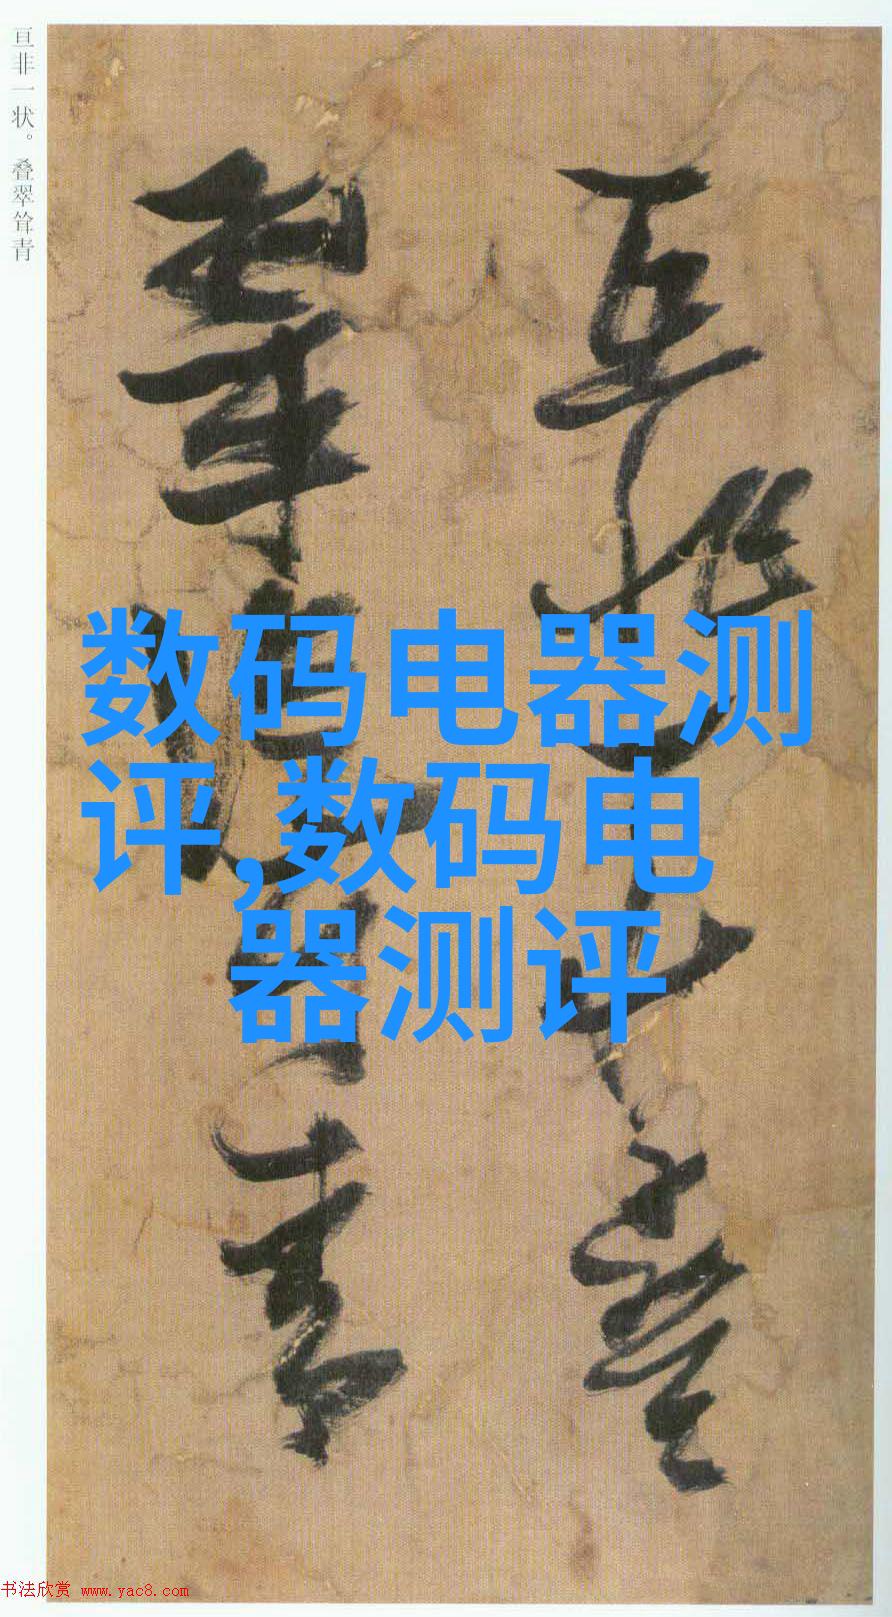 亘非一状。叠翠耸青
亘非一狀疊
翠聳青
数码电器测
评,数码电
器测评
书法欣赏 www.yac8.com